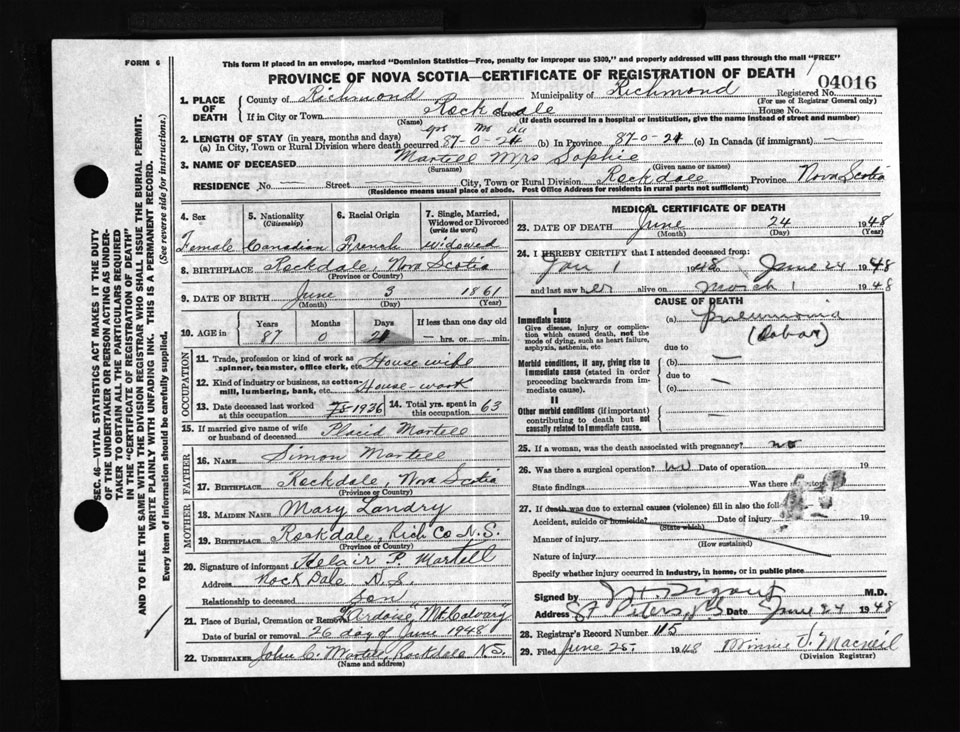 FORM 6
This form if placed in an envelope, marked "Dominion Statistics—Free, penalty for improper use $300," and properly addressed will pass through the mail "FREE"
PROVINCE OF NOVA SCOTIA—CERTIFICATE OF REGISTRATION OF DEATH
04016
1. PLACE OF DEATH
County of Richmond Municipality of Richmond Registered No.
(For use of Registrar General only)
If in City or Town Rockdale Street House No.
(Name) (If death occurred in a hospital or institution, give the name instead of street and number)
yrs mo da
2. LENGTH OF STAY (in years, months and days)
(a) In City, Town or Rural Division where death occurred 87-0-21 (b) In Province 87-0-21 (c) In Canada (if immigrant) —
3. NAME OF DECEASED Martell Mrs Sophie
(Surname) (Given name or names)
RESIDENCE No. — Street — City, Town or Rural Division Rockdale Province Nova Scotia
(Residence means usual place of abode. Post Office Address for residents in rural parts not sufficient)
4. Sex 5. Nationality (Citizenship) 6. Racial Origin 7. Single, Married, Widowed or Divorced (write the word)
Female Canadian French Widowed
8. BIRTHPLACE Rockdale, Nova Scotia
(Province or Country)
9. DATE OF BIRTH June 3 1861
(Month) (Day) (Year)
10. AGE in Years Months Days If less than one day old
87 0 21 — hrs. or — min.
OCCUPATION
11. Trade, profession or kind of work as spinner, teamster, office clerk, etc. Housewife
12. Kind of industry or business, as cotton-mill, lumbering, bank, etc. House-work
13. Date deceased last worked at this occupation 1936 14. Total yrs. spent in this occupation 63
15. If married give name of wife or husband of deceased Placid Martell
FATHER
16. NAME Simon Martell
17. BIRTHPLACE Rockdale, Nova Scotia
(Province or Country)
MOTHER
18. MAIDEN NAME Mary Landry
19. BIRTHPLACE Rockdale, Rich Co N.S.
(Province or Country)
20. Signature of informant Helair P. Martell
Address Rock Dale N.S.
Relationship to deceased Son
21. Place of Burial, Cremation or Removal Ardoise "Mt Calvary"
Date of burial or removal 26 day of June 1948
22. UNDERTAKER John C. Martell Rockdale N.S.
(Name and address)
MEDICAL CERTIFICATE OF DEATH
23. DATE OF DEATH June 24 1948
(Month) (Day) (Year)
24. I HEREBY CERTIFY that I attended deceased from:
Jan 1 1948 June 24 1948
and last saw her alive on March 1 1948
CAUSE OF DEATH
I
Immediate cause
Give disease, injury or complication which caused death, not the mode of dying, such as heart failure, asphyxia, asthenia, etc.
(a) Pneumonia
(Lobar)
due to
Morbid conditions, if any, giving rise to immediate cause (stated in order proceeding backwards from immediate cause).
(b) —
due to
(c) —
II
Other morbid conditions (if important) contributing to death but not causally related to immediate cause.
—
25. If a woman, was the death associated with pregnancy? no
26. Was there a surgical operation? no Date of operation 19
State findings Was there an autopsy?
27. If death was due to external causes (violence) fill in also the
Accident, suicide or homicide? Date of injury 19
(State which)
Manner of injury
(How sustained)
Nature of injury
Specify whether injury occurred in industry, in home, or in public place
Signed by M.D.
Address St Peters, N.S. Date June 24 1948
28. Registrar's Record Number 115
29. Filed June 25 1948 Minnie J. Macneil
(Division Registrar)
SEC. 46—VITAL STATISTICS ACT MAKES IT THE DUTY
OF THE UNDERTAKER OR PERSON ACTING AS UNDER-
TAKER TO OBTAIN ALL THE PARTICULARS REQUIRED
IN THE "CERTIFICATE OF REGISTRATION OF DEATH"
AND TO FILE THE SAME WITH THE DIVISION REGISTRAR WHO SHALL ISSUE THE BURIAL PERMIT.
WRITE PLAINLY WITH UNFADING INK. THIS IS A PERMANENT RECORD.
Every item of information should be carefully supplied. (See reverse side for instructions.)